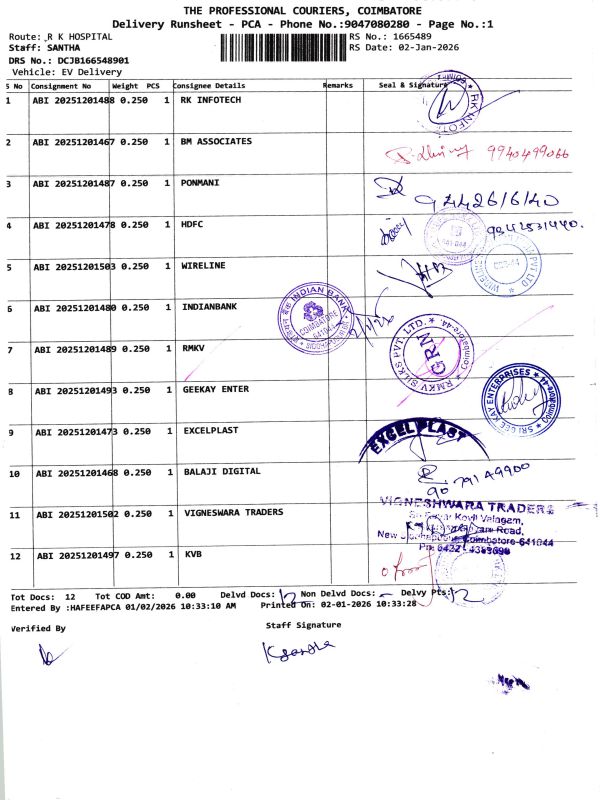 THE PROFESSIONAL COURIERS, COIMBATORE
Delivery Runsheet - PCA - Phone No.:9047080280 - Page No.:1
Route: R K HOSPITAL RS No.: 1665489
Staff: SANTHA RS Date: 02-Jan-2026
DRS No.: DCJB166548901
Vehicle: EV Delivery
S No Consignment No Weight PCS Consignee Details Remarks Seal & Signature
1 ABI 20251201488 0.250 1 RK INFOTECH
RK INFOTE
2 ABI 20251201467 0.250 1 BM ASSOCIATES
9940499066
3 ABI 20251201487 0.250 1 PONMANI
9442616140
4 ABI 20251201478 0.250 1 HDFC
9342531440.
5 ABI 20251201503 0.250 1 WIRELINE
PVT LTD
6 ABI 20251201480 0.250 1 INDIANBANK
INDIAN BANK
COIMBATORE
7 ABI 20251201489 0.250 1 RMKV
RMKV SILKS PVT. LTD. Coimbatore-44.
GRN
8 ABI 20251201493 0.250 1 GEEKAY ENTER
SRI GEE KAY ENTERPRISES Coimbatore-44
9 ABI 20251201473 0.250 1 EXCELPLAST
EXCEL PLAST
10 ABI 20251201468 0.250 1 BALAJI DIGITAL
90 791 49900
11 ABI 20251201502 0.250 1 VIGNESWARA TRADERS
VIGNESHWARA TRADERS
Kovil Valagam,
Road,
New Coimbatore-641044
12 ABI 20251201497 0.250 1 KVB
Tot Docs: 12 Tot COD Amt: 0.00 Delvd Docs: 12 Non Delvd Docs: - Delvy Pts: 12
Entered By :HAFEEFAPCA 01/02/2026 10:33:10 AM Printed On: 02-01-2026 10:33:28
Verified By Staff Signature